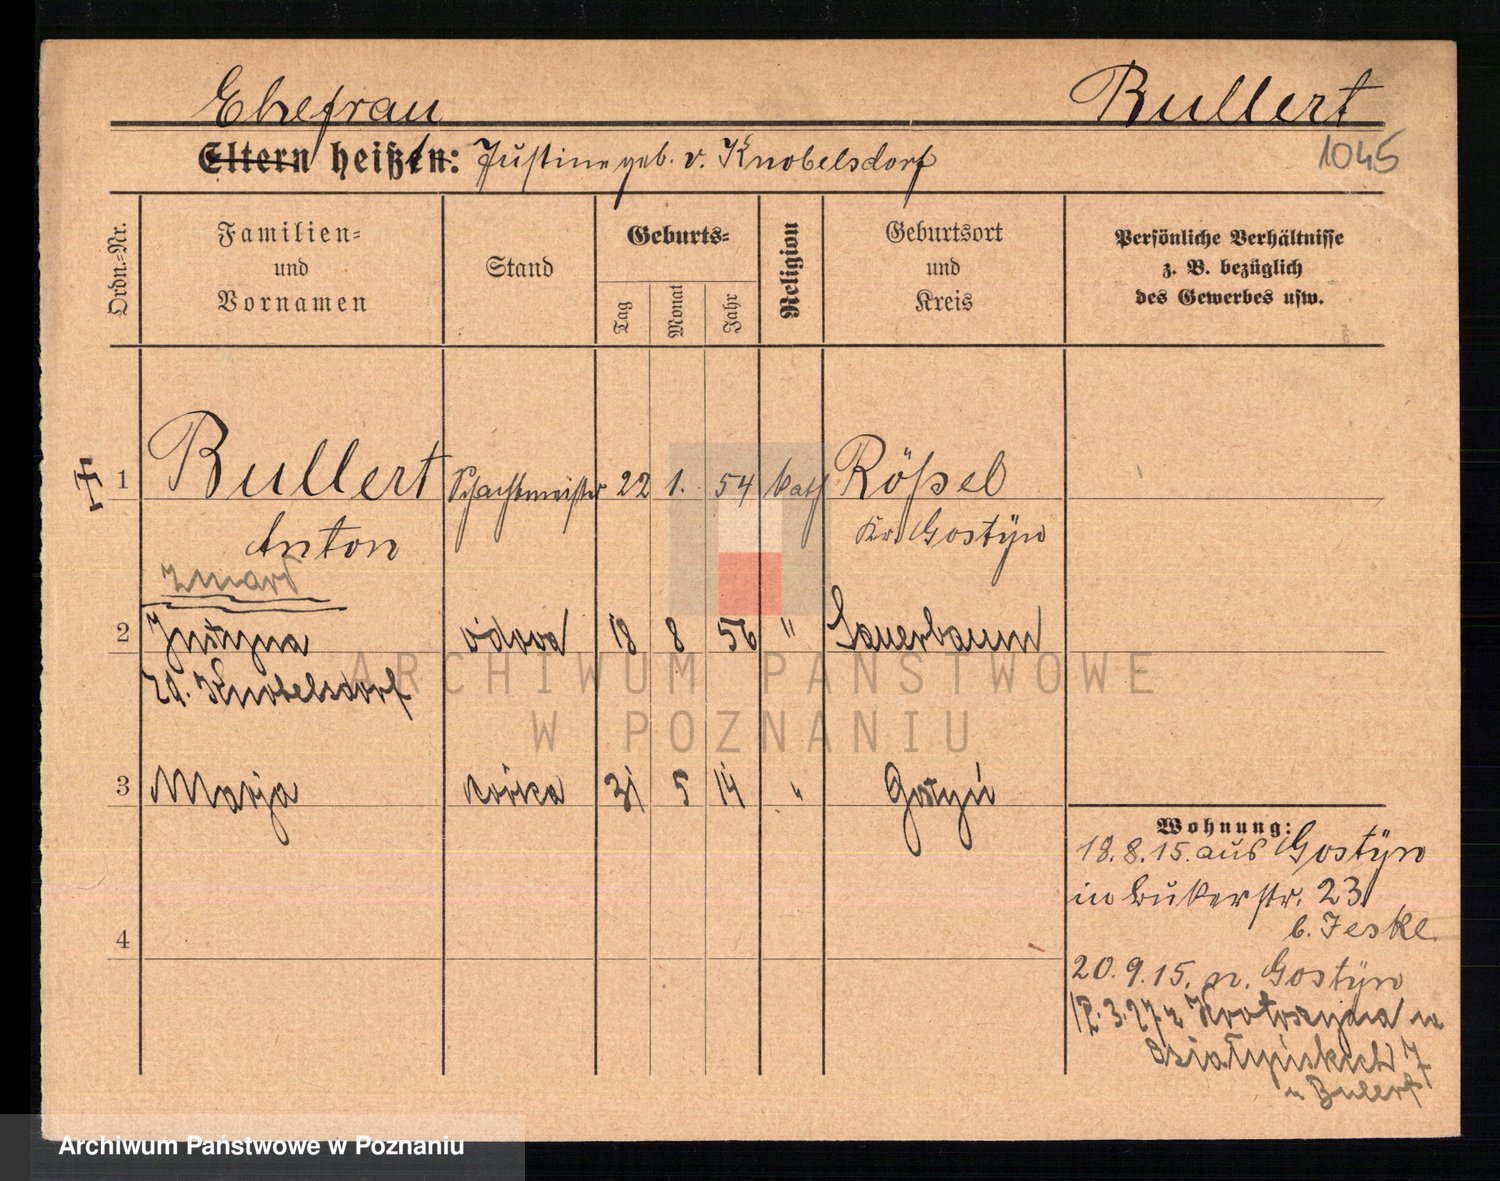 Ehefrau Bullert
Eltern heißen: Justine geb. v. Knobelsdorf 1045
Ordn.=Nr.
Familien=
und
Vornamen
Stand
Geburts=
Tag
Monat
Jahr
Religion
Geburtsort
und
Kreis
Persönliche Verhältnisse
z. B. bezüglich
des Gewerbes usw.
1 Bullert Schachtmeister 22 1. 54 kath Rößel
Anton Kr. Gostÿn
zmarł
2 Justyna wdowa 18 8 56 " Sauerbaum
zd. Knobelsdorf
3 Marja córka 31 5 14 " Gostyń
4
Wohnung:
18.8.15. aus Gostÿn
in Bukerstr. 23
b. Jeske
20.9.15. n. Gostÿn
12.3.27 z Krotoszyna
Działyńskich 7
u Bulert
ARCHIWUM PAŃSTWOWE
W POZNANIU
Archiwum Państwowe w Poznaniu